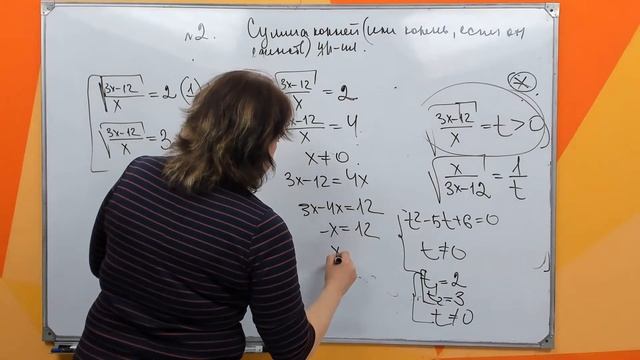 №2. Сумма корней (или корень, если он
единств) ур-ия.
√(3x-12)/x = 2 (1)
√(3x-12)/x = 3
√(3x-12)/x = 2
-12/x = 4
x≠0.
3x-12=4x
3x-4x=12
-x=12
x
(*)
√(3x-12)/x = t>0
√x/(3x-12) = 1/t
t²-5t+6=0
t≠0
t₁=2
t₂=3
t≠0